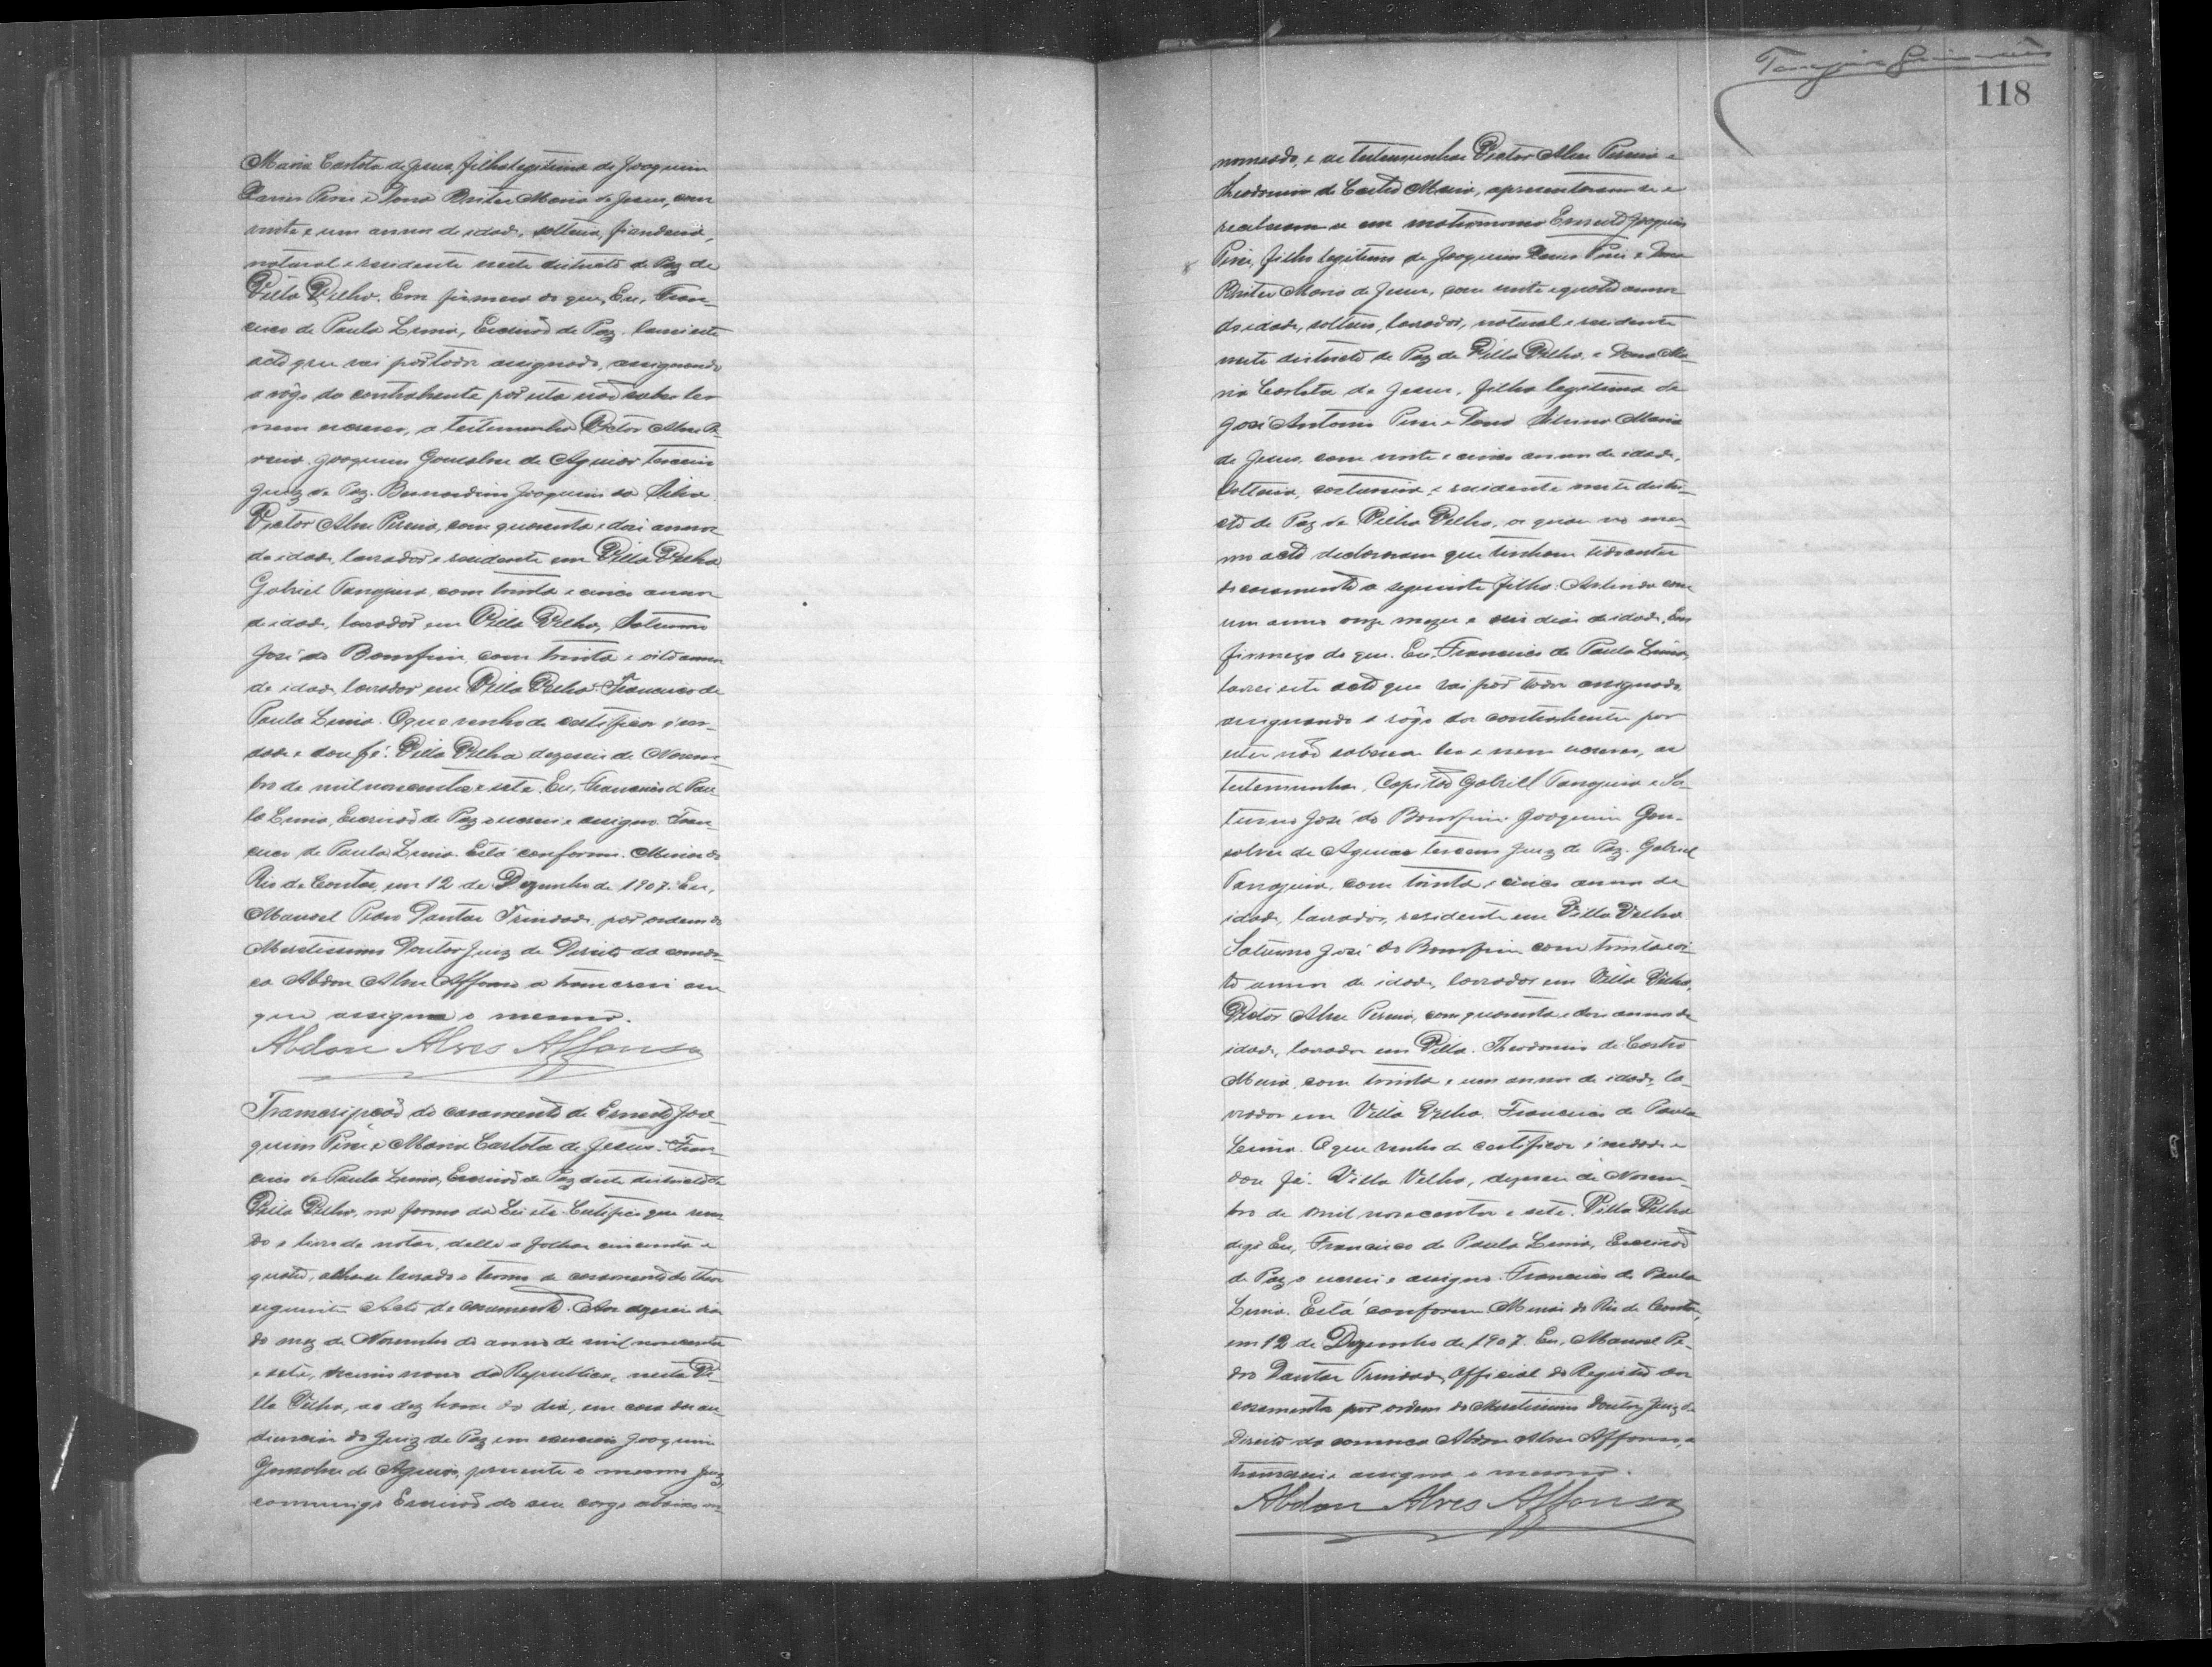 Maria Carlota de Jesus, filha legitima de Joaquim
Xavier Pires e Dona Brites Maria de Jesus, com
vinte e um annos de idade, solteira, fiandeira,
natural e residente neste districto de Paz de
Villa Velha. Em firmeza do que, Eu, Fran-
cisco de Paula Lima, Escrivão de Paz, lavrei este
acto que vai por todos assignado, assignando
a rôgo da contrahente por esta não saber ler
nem escrever, a testemunha Victor Alves Pe-
reira. Joaquim Gonsalves de Aguiar terceiro
Juiz de Paz. Bernardino Joaquim da Silva.
Victor Alves Pereira, com quarenta e dois annos
de idade, lavrador e residente em Villa Velha
Gabriel Tanajura, com trinta e cinco annos
de idade, lavrador em Villa Velha, Saturno
José do Bomfim, com trinta e oito annos
de idade, lavrador em Villa Velha. Francisco de
Paula Lima. O que venho de certificar é ver-
dade e dou fé. Villa Velha dezeseis de Novem-
bro de mil novecentos e sete. Eu, Francisco de Pau-
la Lima, Escrivão de Paz o escrevi e assigno. Fran-
cisco de Paula Lima. Está conforme. Minas do
Rio de Contas, em 12 de Dezembro de 1907. Eu,
Manoel Pedro Dantas Trindade, por ordem do
Meretissimo Doutor Juiz de Direito da comar-
ca Abdon Alves Affonso a transcrevi em
que assigna o mesmo.
Abdon Alves Affonso
Transcripção do casamento de Ernesto Joa-
quim Pires e Maria Carlota de Jesus. Fran-
cisco de Paula Lima, Escrivão de Paz deste districto de
Villa Velha, na forma da Lei etc. Certifico que ven-
do o livro de notas, delle a folhas cincoenta e
quatro, acha-se lavrado o termo de casamento do theor
seguinte: Acto de casamento. Aos dezeseis dias
do mez de Novembro do anno de mil novecentos
e sete, decimo nono da Republica, nesta Vi-
lla Velha, as dez horas do dia, em casa das au-
diencias do Juiz de Paz em exercicio Joaquim
Gonsalves de Aguiar, presente o mesmo Juiz,
commigo Escrivão do seu cargo abaixo no-
Tanajura Guimarães
118
nomeado, e as testemunhas Victor Alves Pereira e
Theodomiro de Castro Meira, apresentaram-se e
receberam-se em matrimonio Ernesto Joaquim
Pires, filho legitimo de Joaquim Xavier Pires e Dona
Brites Maria de Jesus, com vinte e quatro annos
de idade, solteiro, lavrador, natural e residente
neste districto de Paz de Villa Velha, e Dona Ma-
ria Carlota de Jesus, filha legitima de
José Antonio Pires e Dona Maria
de Jesus, com vinte e cinco annos de idade,
solteira, costureira, e residente neste distri-
cto de Paz de Villa Velha, os quaes no mes-
mo acto declararam que tinham tido antes
do casamento o seguinte filho: Arlindo com
um anno onze mezes e seis dias de idade. Em
firmeza do que. Eu, Francisco de Paula Lima,
lavrei este acto que vai por todos assignado,
assignando a rôgo dos contrahentes por
estes não saberem ler e nem escrever, as
testemunhas, Capitão Gabriel Tanajura e Sa-
turno José do Bomfim. Joaquim Gon-
salves de Aguiar terceiro Juiz de Paz. Gabriel
Tanajura, com trinta e cinco annos de
idade, lavrador, residente em Villa Velha
Saturno José do Bomfim com trinta e oi-
to annos de idade, lavrador em Villa Velha,
Victor Alves Pereira, com quarenta e dois annos de
idade, lavrador em Villa. Theodomiro de Castro
Meira, com trinta e um annos de idade, la-
vrador em Villa Velha. Francisco de Paula
Lima. O que venho de certificar é verdade e
dou fé. Villa Velha, dezeseis de Novem-
bro de mil novecentos e sete. Villa Velha
digo Eu, Francisco de Paula Lima, Escrivão
de Paz o escrevi e assigno. Francisco de Paula
Lima. Está conforme. Minas do Rio de Contas,
em 12 de Dezembro de 1907. Eu, Manoel Pe-
dro Dantas Trindade, Official do Registro dos
casamentos por ordem do Meretissimo Doutor Juiz de
Direito da comarca Abdon Alves Affonso, a
transcrevi e assigna o mesmo.
Abdon Alves Affonso